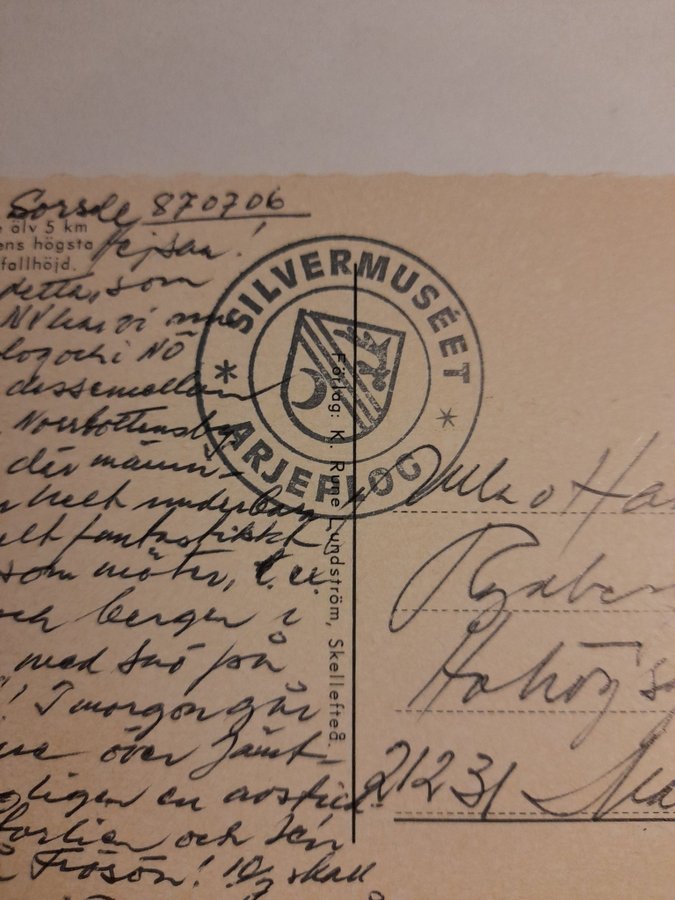 Sorsele 870706
e älv 5 km
Hejsan!
ens högsta
fallhöjd.
detta, som
NV har vi
log och i NÖ
dessemellan
Norrbottens
där männ-
helt underbar
elt fantastiskt
som möter,
och bergen i
med snö på
! I morgon går
över Jämt-
ligen en avstick-
och sen
Frösön! 10/7 skall
SILVERMUSÉET
ARJEPLOG
Förlag: K. Rune Lundström, Skellefteå.
o Ha
Rydber
Håkög's
21231 Ma